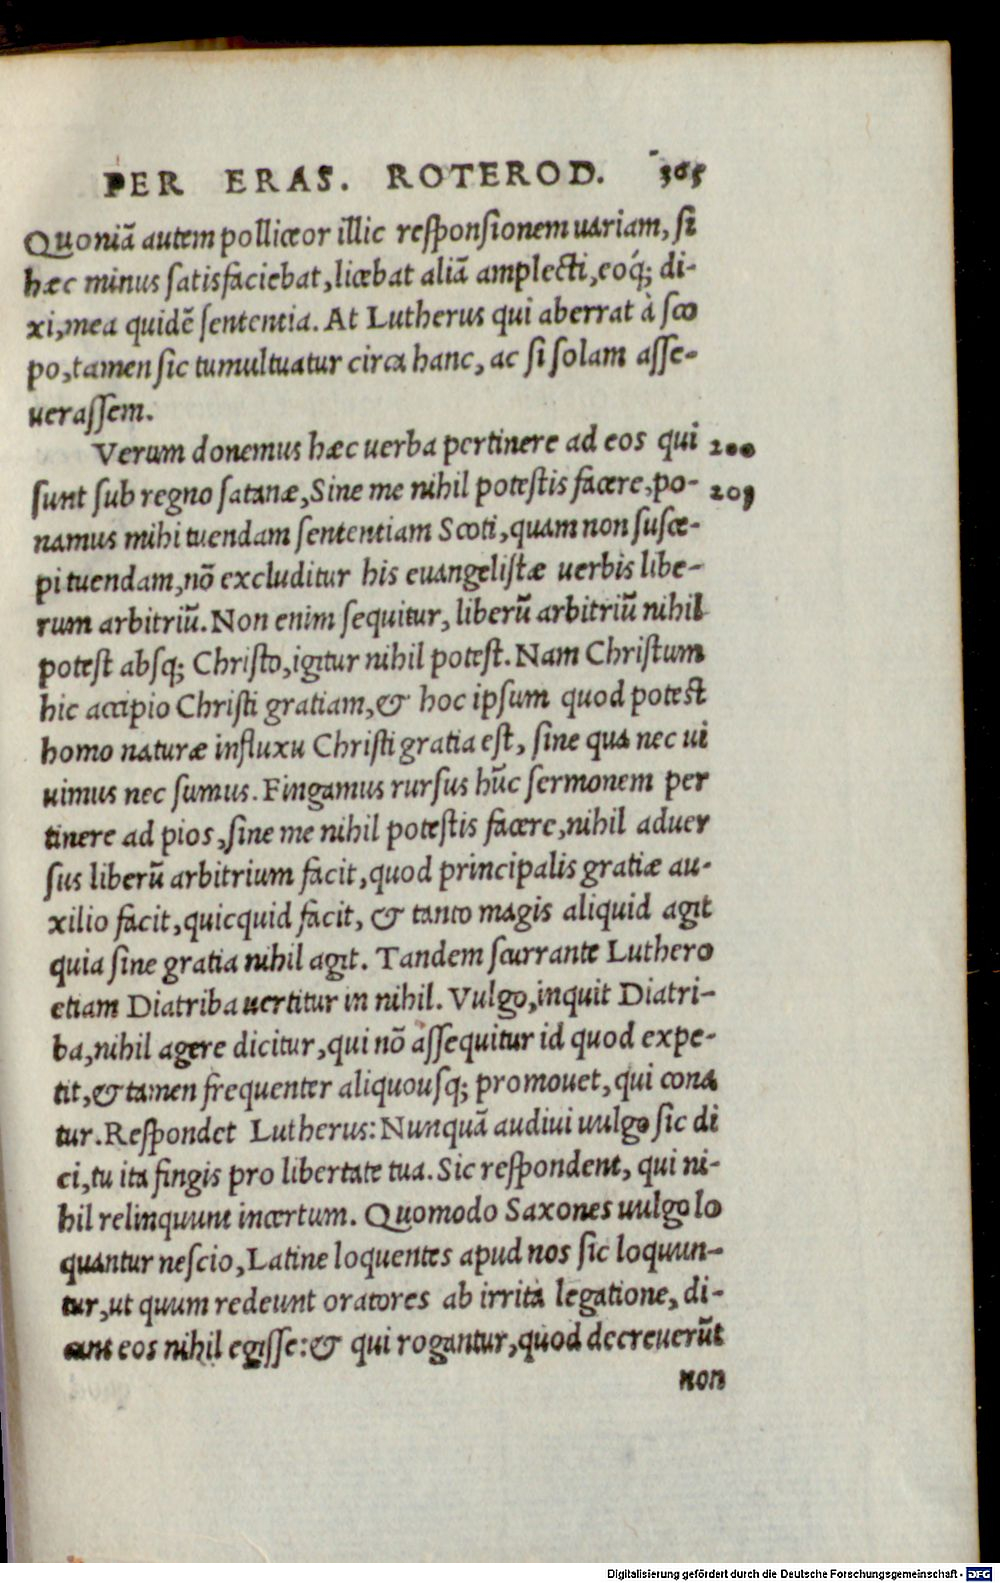 PER ERAS. ROTEROD. 365
Quoniā autem polliceor illic responsionem uariam, si
hæc minus satisfaciebat, licebat aliā amplecti, eoq́; di-
xi, mea quidē sententia. At Lutherus qui aberrat à sco
po, tamen sic tumultuatur circa hanc, ac si solam asse-
uerassem.
Verum donemus hæc uerba pertinere ad eos qui 200
sunt sub regno satanæ, Sine me nihil potestis facere, po- 201
namus mihi tuendam sententiam Scoti, quam non susce-
pi tuendam, nō excluditur his euangelistæ uerbis libe-
rum arbitriū. Non enim sequitur, liberū arbitriū nihil
potest absq; Christo, igitur nihil potest. Nam Christum
hic accipio Christi gratiam, & hoc ipsum quod potest
homo naturæ influxu Christi gratia est, sine qua nec ui
uimus nec sumus. Fingamus rursus hūc sermonem per
tinere ad pios, sine me nihil potestis facere, nihil aduer
sus liberū arbitrium facit, quod principalis gratiæ au-
xilio facit, quicquid facit, & tanto magis aliquid agit
quia sine gratia nihil agit. Tandem scurrante Luthero
etiam Diatriba uertitur in nihil. Vulgo, inquit Diatri-
ba, nihil agere dicitur, qui nō assequitur id quod expe-
tit, & tamen frequenter aliquousq; promouet, qui cona
tur. Respondet Lutherus: Nunquā audiui uulgo sic di
ci, tu ita fingis pro libertate tua. Sic respondent, qui ni-
hil relinquunt incertum. Quomodo Saxones uulgo lo
quantur nescio, Latine loquentes apud nos sic loquun-
tur, ut quum redeunt oratores ab irrita legatione, di-
cant eos nihil egisse: & qui rogantur, quod decreuerūt
non
Digitalisierung gefördert durch die Deutsche Forschungsgemeinschaft - DFG